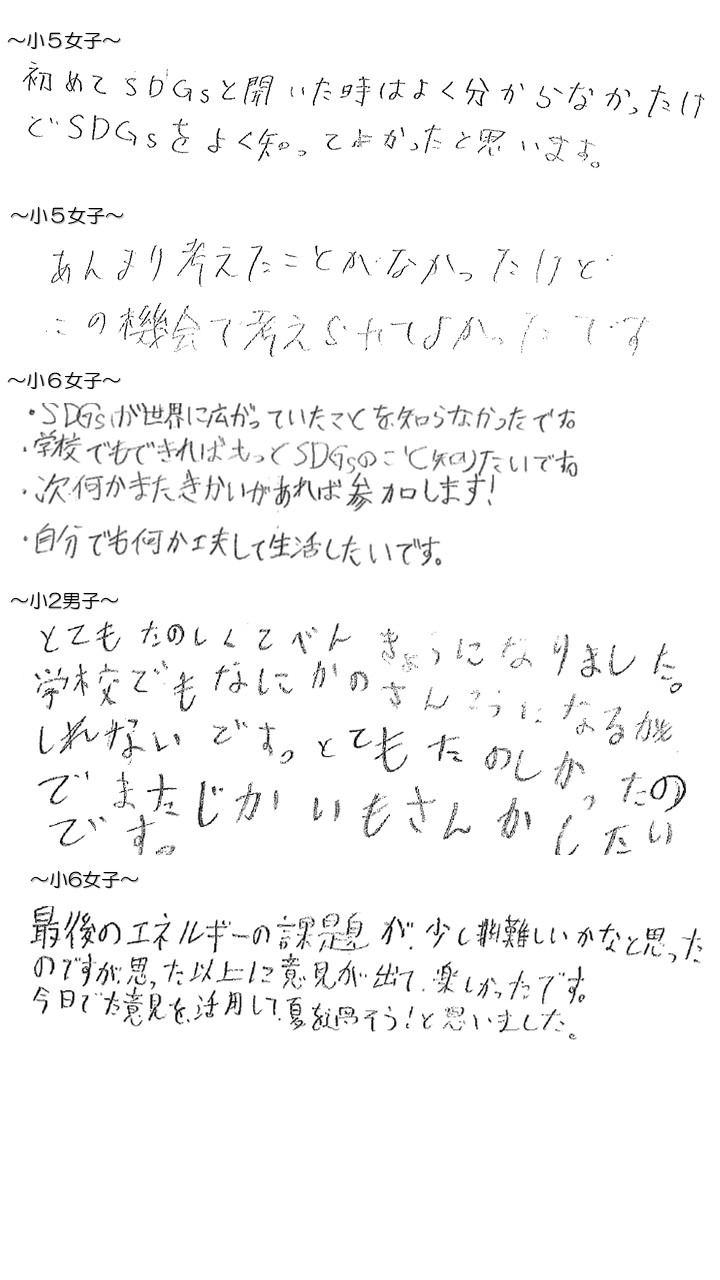 ～小５女子～
初めてSDGsと聞いた時はよく分からなかったけ
どSDGsをよく知ってよかったと思います。
～小５女子～
あんまり考えたことがなかったけど
この機会で考えられてよかったです
～小６女子～
・SDGsが世界に広がっていたことを知らなかったです。
・学校でもできればもっとSDGsのこと知りたいです。
・次何かまたきかいがあれば参加します!
・自分でも何か工夫して生活したいです。
～小2男子～
とてもたのしくてべんきょうになりました。
学校でもなにかのさんこうになるかも
しれないです。とてもたのしかったの
でまたじかいもさんかしたい
です。
～小6女子～
最後のエネルギーの課題が、少し難しいかなと思った
のですが、思った以上に意見が出て、楽しかったです。
今日でた意見を、活用して、夏を過そう!と思いました。